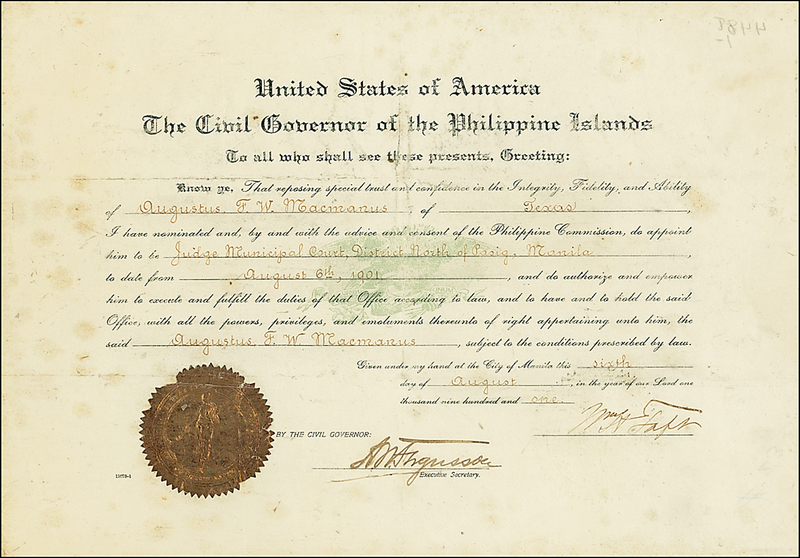 United States of America
The Civil Governor of the Philippine Islands
To all who shall see these presents, Greeting:
Know ye, That reposing special trust and confidence in the Integrity, Fidelity, and Ability
of Augustus, F. W. Macmanus of Texas,
I have nominated and, by and with the advice and consent of the Philippine Commission, do appoint
him to be Judge Municipal Court, District North of Pasig, Manila,
to date from August 6th, 1901, and do authorize and empower
him to execute and fulfill the duties of that Office according to law, and to have and to hold the said
Office, with all the powers, privileges, and emoluments thereunto of right appertaining unto him, the
said Augustus, F. W. Macmanus, subject to the conditions prescribed by law.
Given under my hand at the City of Manila this sixth
day of August, in the year of our Lord one
thousand nine hundred and one.
Wm H Taft
BY THE CIVIL GOVERNOR:
A W Fergusson
Executive Secretary.